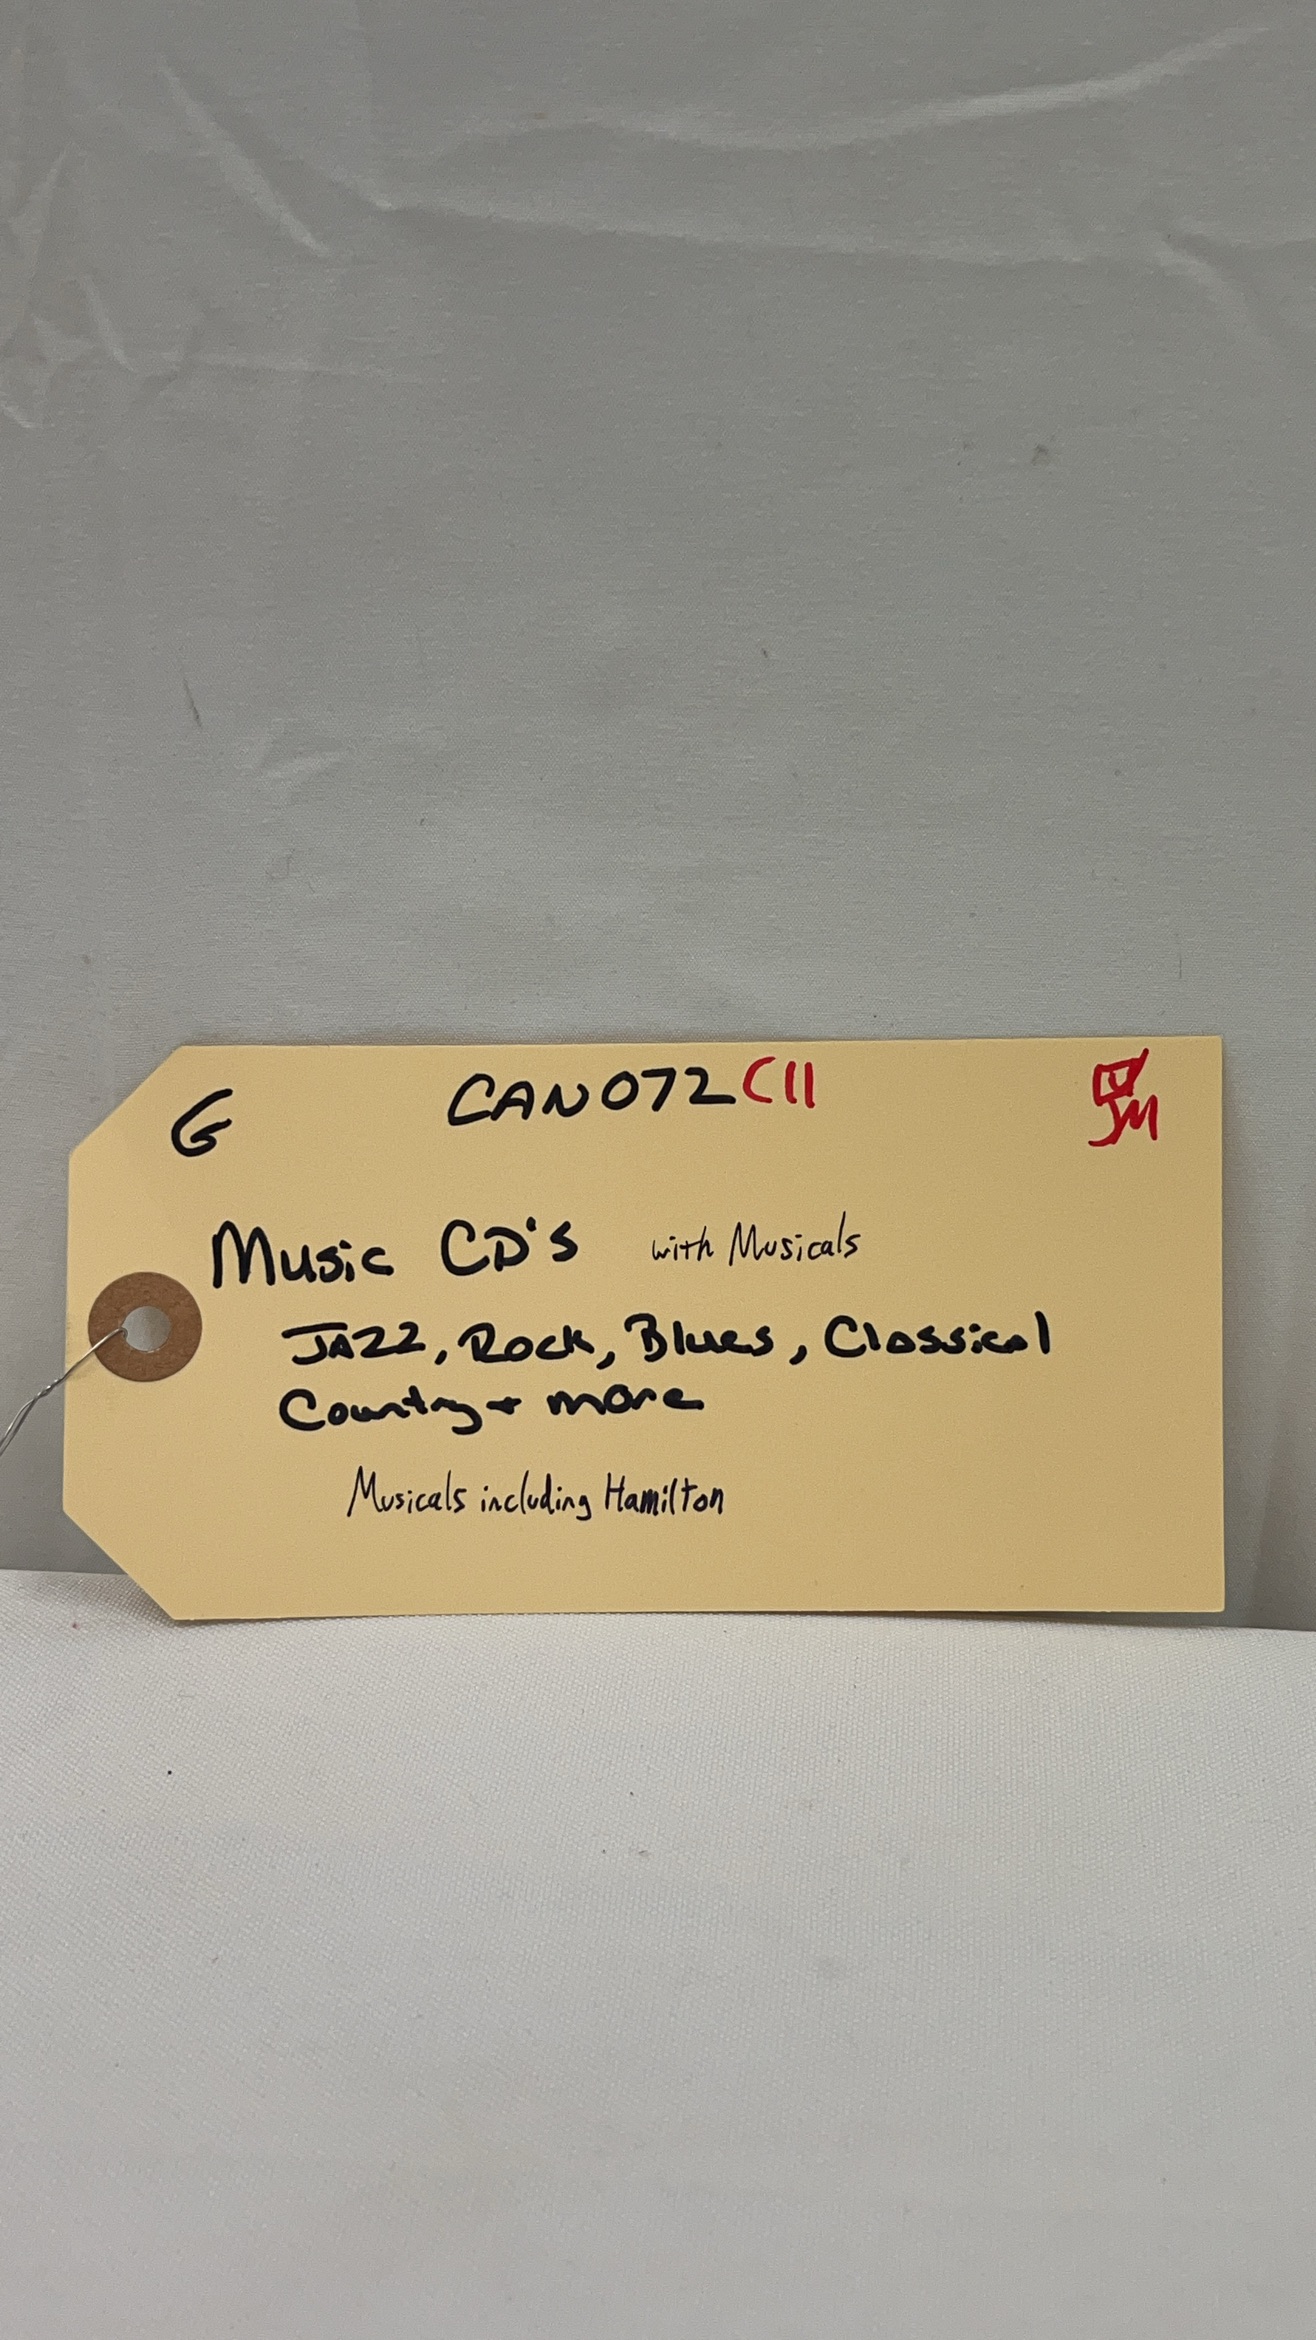 G CAN072 C11
JM
Music CD's with Musicals
JAZZ, Rock, Blues, Classical
Country + more
Musicals including Hamilton